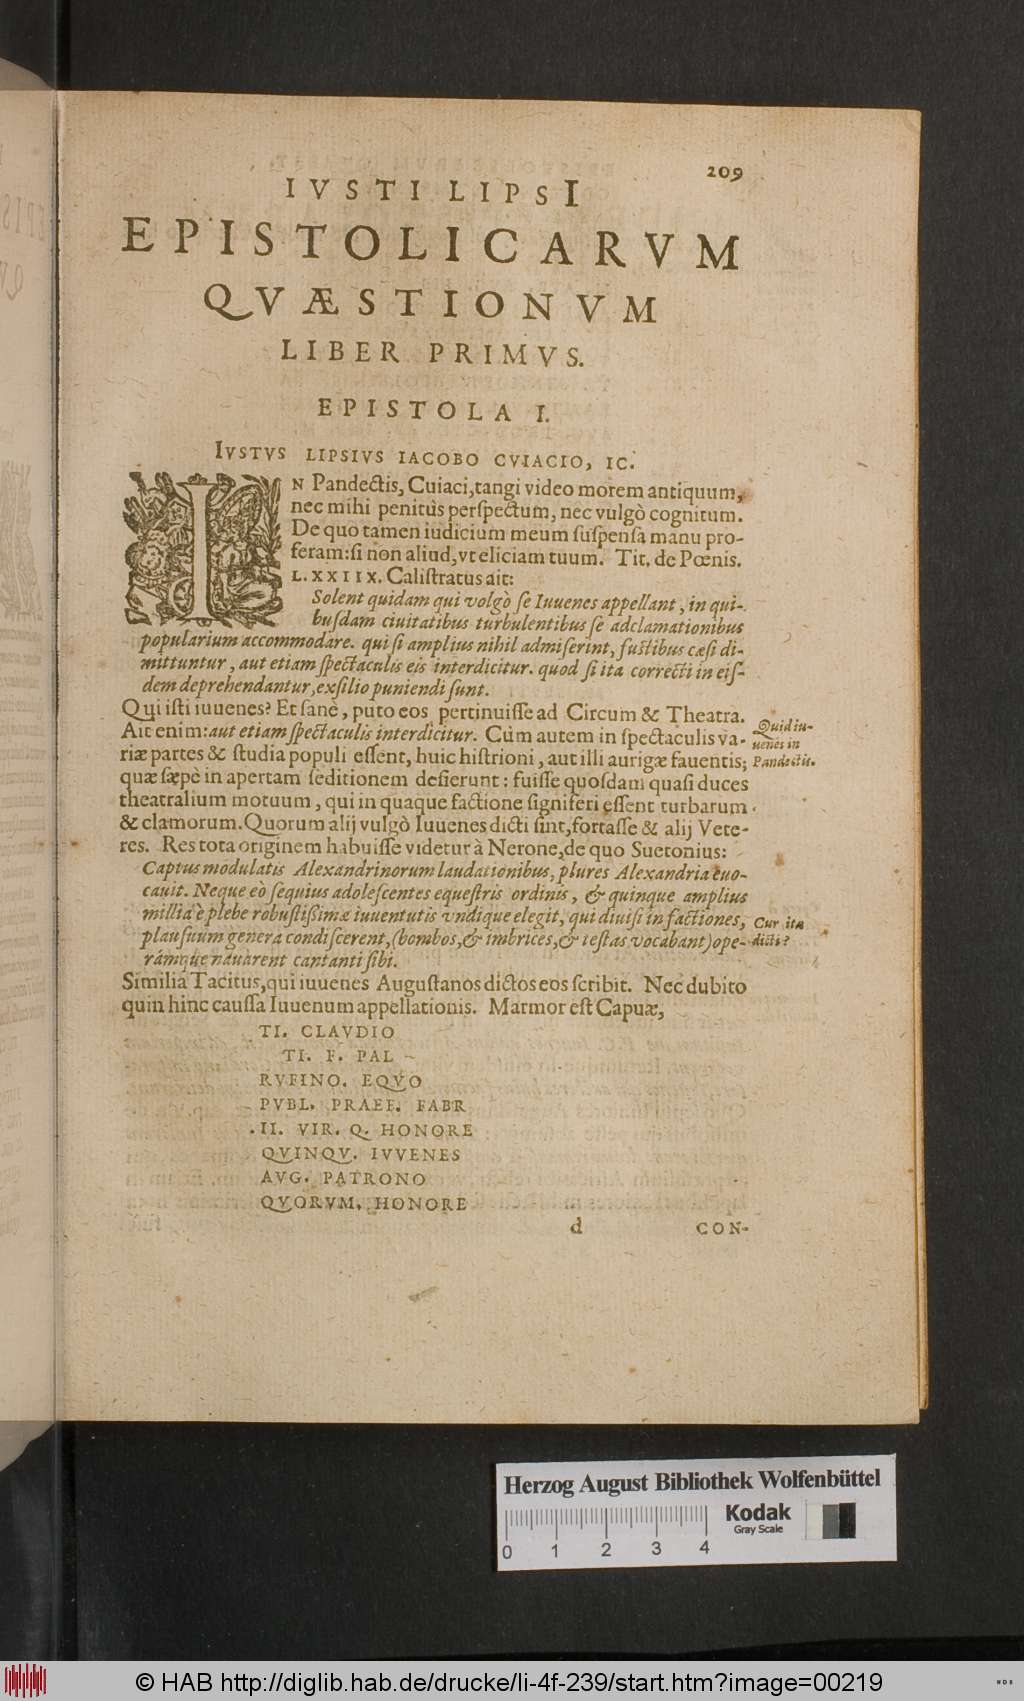 209
IVSTI LIPSI
EPISTOLICARVM
QVÆSTIONVM
LIBER PRIMVS.
EPISTOLA I.
IVSTVS LIPSIVS IACOBO CVIACIO, IC.
IN Pandectis, Cuiaci, tangi video morem antiquum,
nec mihi penitus perſpectum, nec vulgò cognitum.
De quo tamen iudicium meum ſuſpenſa manu pro-
feram: ſi non aliud, vt eliciam tuum. Tit. de Pœnis.
L. XXIIX. Caliſtratus ait:
Solent quidam qui volgò ſe Iuuenes appellant, in qui-
buſdam ciuitatibus turbulentibus ſe adclamationibus
popularium accommodare. qui ſi amplius nihil admiſerint, fuſtibus cæſi di-
mittuntur, aut etiam ſpectaculis eis interdicitur. quod ſi ita correcti in eiſ-
dem deprehendantur, exſilio puniendi ſunt.
Qui iſti iuuenes? Et ſanè, puto eos pertinuiſſe ad Circum & Theatra.
Ait enim: aut etiam ſpectaculis interdicitur. Cùm autem in ſpectaculis va-
riæ partes & ſtudia populi eſſent, huic hiſtrioni, aut illi aurigæ fauentis;
quæ ſæpè in apertam ſeditionem deſierunt: fuiſſe quoſdam quaſi duces
theatralium motuum, qui in quaque factione ſigniferi eſſent turbarum
& clamorum. Quorum alij vulgò Iuuenes dicti ſint, fortaſſe & alij Vete-
res. Res tota originem habuiſſe videtur à Nerone, de quo Suetonius:
Quid iu-
uenes in
Pandectis.
Captus modulatis Alexandrinorum laudationibus, plures Alexandria euo-
cauit. Neque eò ſequius adoleſcentes equeſtris ordinis, & quinque amplius
millia è plebe robuſtiſſimæ iuuentutis vndique elegit, qui diuiſi in factiones,
plauſuum genera condiſcerent, (bombos, & imbrices, & teſtas vocabant) ope-
rámque nauarent cantanti ſibi.
Cur ita
dicti?
Similia Tacitus, qui iuuenes Auguſtanos dictos eos ſcribit. Nec dubito
quin hinc cauſſa Iuuenum appellationis. Marmor eſt Capuæ,
TI. CLAVDIO
TI. F. PAL
RVFINO. EQVO
PVBL. PRAEF. FABR
II. VIR. Q. HONORE
QVINQV. IVVENES
AVG. PATRONO
QVORVM. HONORE
d
CON-
Herzog August Bibliothek Wolfenbüttel
Kodak
Gray Scale
0 1 2 3 4
© HAB http://diglib.hab.de/drucke/li-4f-239/start.htm?image=00219